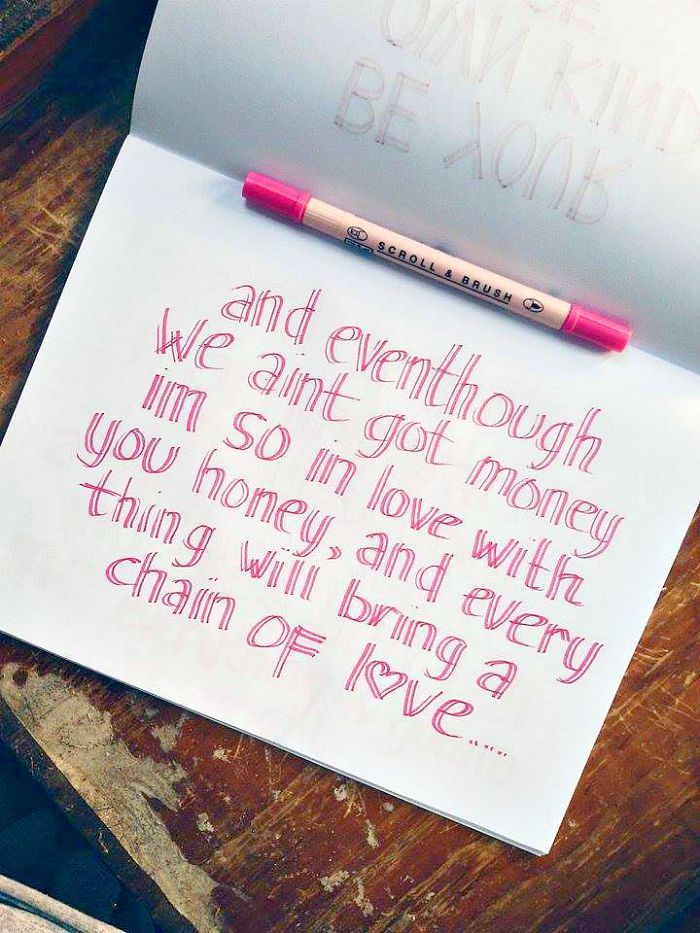 BE YOUR
OWN KIND
OF
SCROLL & BRUSH
and eventhough
we aint got money
iim so in love with
you honey, and every
thing will bring a
chain OF love....